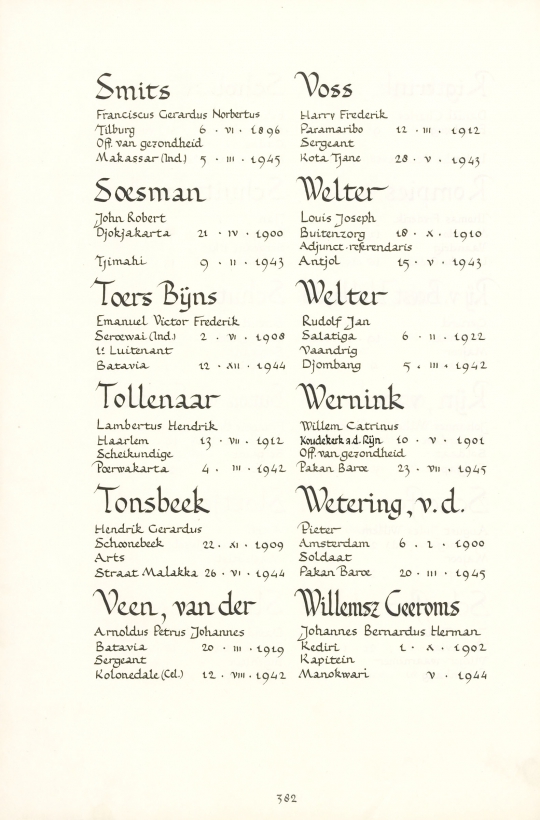 Smits
Franciscus Gerardus Norbertus
Tilburg 6 · VI · 1896
Off. van gezondheid
Makassar (Ind.) 5 · III · 1945
Soesman
John Robert
Djokjakarta 21 · IV · 1900
Tjimahi 9 · II · 1943
Toers Bijns
Emanuel Victor Frederik
Seroewai (Ind.) 2 · VI · 1908
1e Luitenant
Batavia 12 · XII · 1944
Tollenaar
Lambertus Hendrik
Haarlem 13 · VII · 1912
Scheikundige
Poerwakarta 4 · III · 1942
Tonsbeek
Hendrik Gerardus
Schoonebeek 22 · XI · 1909
Arts
Straat Malakka 26 · VI · 1944
Veen, van der
Arnoldus Petrus Johannes
Batavia 20 · III · 1919
Sergeant
Kolonedale (Cel.) 12 · VIII · 1942
Voss
Harry Frederik
Paramaribo 12 · III · 1912
Sergeant
Kota Tjane 28 · V · 1943
Welter
Louis Joseph
Buitenzorg 18 · X · 1910
Adjunct-referendaris
Antjol 15 · V · 1943
Welter
Rudolf Jan
Salatiga 6 · II · 1922
Vaandrig
Djombang 5 · III · 1942
Wernink
Willem Catrinus
Koudekerk a.d. Rijn 10 · V · 1901
Off. van gezondheid
Pakan Baroe 23 · VII · 1945
Wetering, v.d.
Pieter
Amsterdam 6 · 1 · 1900
Soldaat
Pakan Baroe 20 · III · 1945
Willemsz Geeroms
Johannes Bernardus Herman
Kediri 1 · X · 1902
Kapitein
Manokwari V · 1944
382